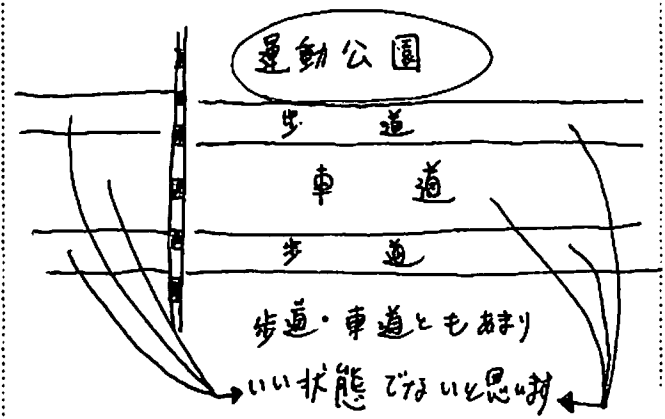 運動公園
歩道
車道
歩道
歩道・車道ともあまり
いい状態でないと思います